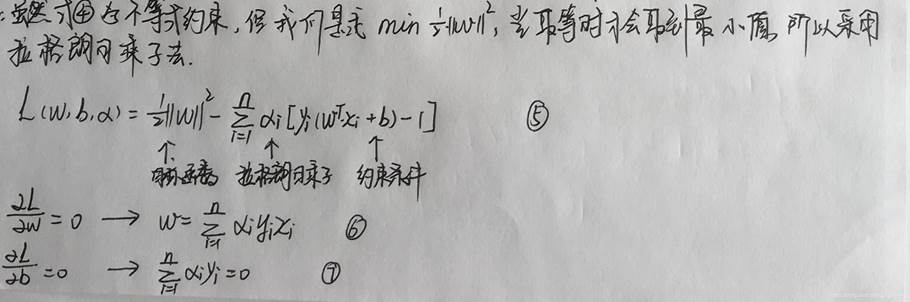 虽然式④为不等式约束,但我们是求 min ½||w||², 当取等时才会取到最小值, 所以采用
拉格朗日乘子法.
L(w,b,α)=½||w||² - Σᵢ₌₁ⁿ αᵢ[yᵢ(wᵀxᵢ+b)-1] ⑤
↑ ↑ ↑
目标函数 拉格朗日乘子 约束条件
∂L/∂w = 0 → w = Σᵢ₌₁ⁿ αᵢyᵢxᵢ ⑥
∂L/∂b = 0 → Σᵢ₌₁ⁿ αᵢyᵢ = 0 ⑦